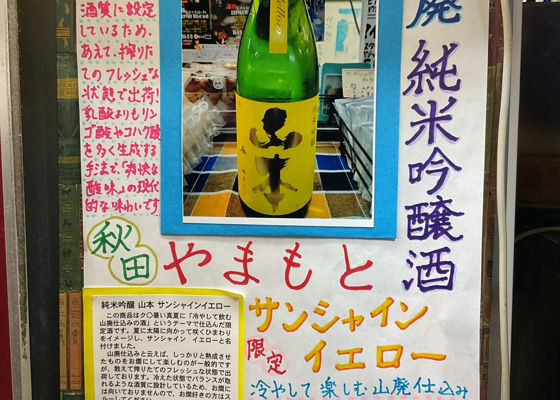 酒質に設定
しているため、
あえて、搾りた
てのフレッシュな
状態で出荷!
乳酸よりもリン
ゴ酸やコハク酸
を多く生成する
手法で、「爽快な
酸味」の現代
的な味わいです
山本
廃 純米吟醸酒
秋田
やまもと
サンシャイン
イエロー
限定
冷やして楽しむ山廃仕込み
純米吟醸 山本 サンシャインイエロー
この商品はク〇暑い真夏に「冷やして飲む
山廃仕込みの酒」というテーマで仕込んだ限
定酒です。夏に太陽に向かって咲くひまわり
をイメージし、サンシャイン イエローと名
付けました。
山廃仕込みと云えば、しっかりと熟成させ
たものをお燗にして楽しむのが一般的です
が、敢えて搾りたてのフレッシュな状態で出
荷しております。冷えた状態でバランスが取
れるような酒質に設計しているため、お燗に
は向いておりませんので、お燗好きの方はス